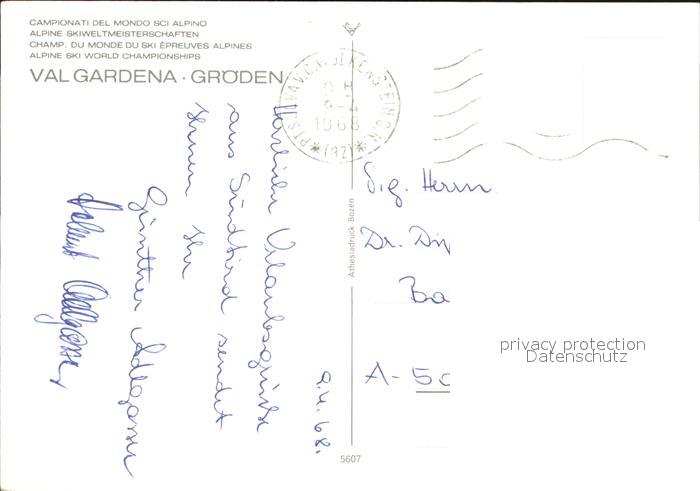 CAMPIONATI DEL MONDO SCI ALPINO
ALPINE SKIWELTMEISTERSCHAFTEN
CHAMP. DU MONDE DU SKI ÉPREUVES ALPINES
ALPINE SKI WORLD CHAMPIONSHIPS
VAL GARDENA · GRÖDEN
1968
*(BZ)*
9.4.68.
Herzliche Urlaubsgrüße
aus Südtirol sendet
Ihnen Ihr
Günther Adlgasser
Athesiadruck Bozen
5607
Sig. Herrn
Dr. Dip
Ba
A - 50
privacy protection
Datenschutz